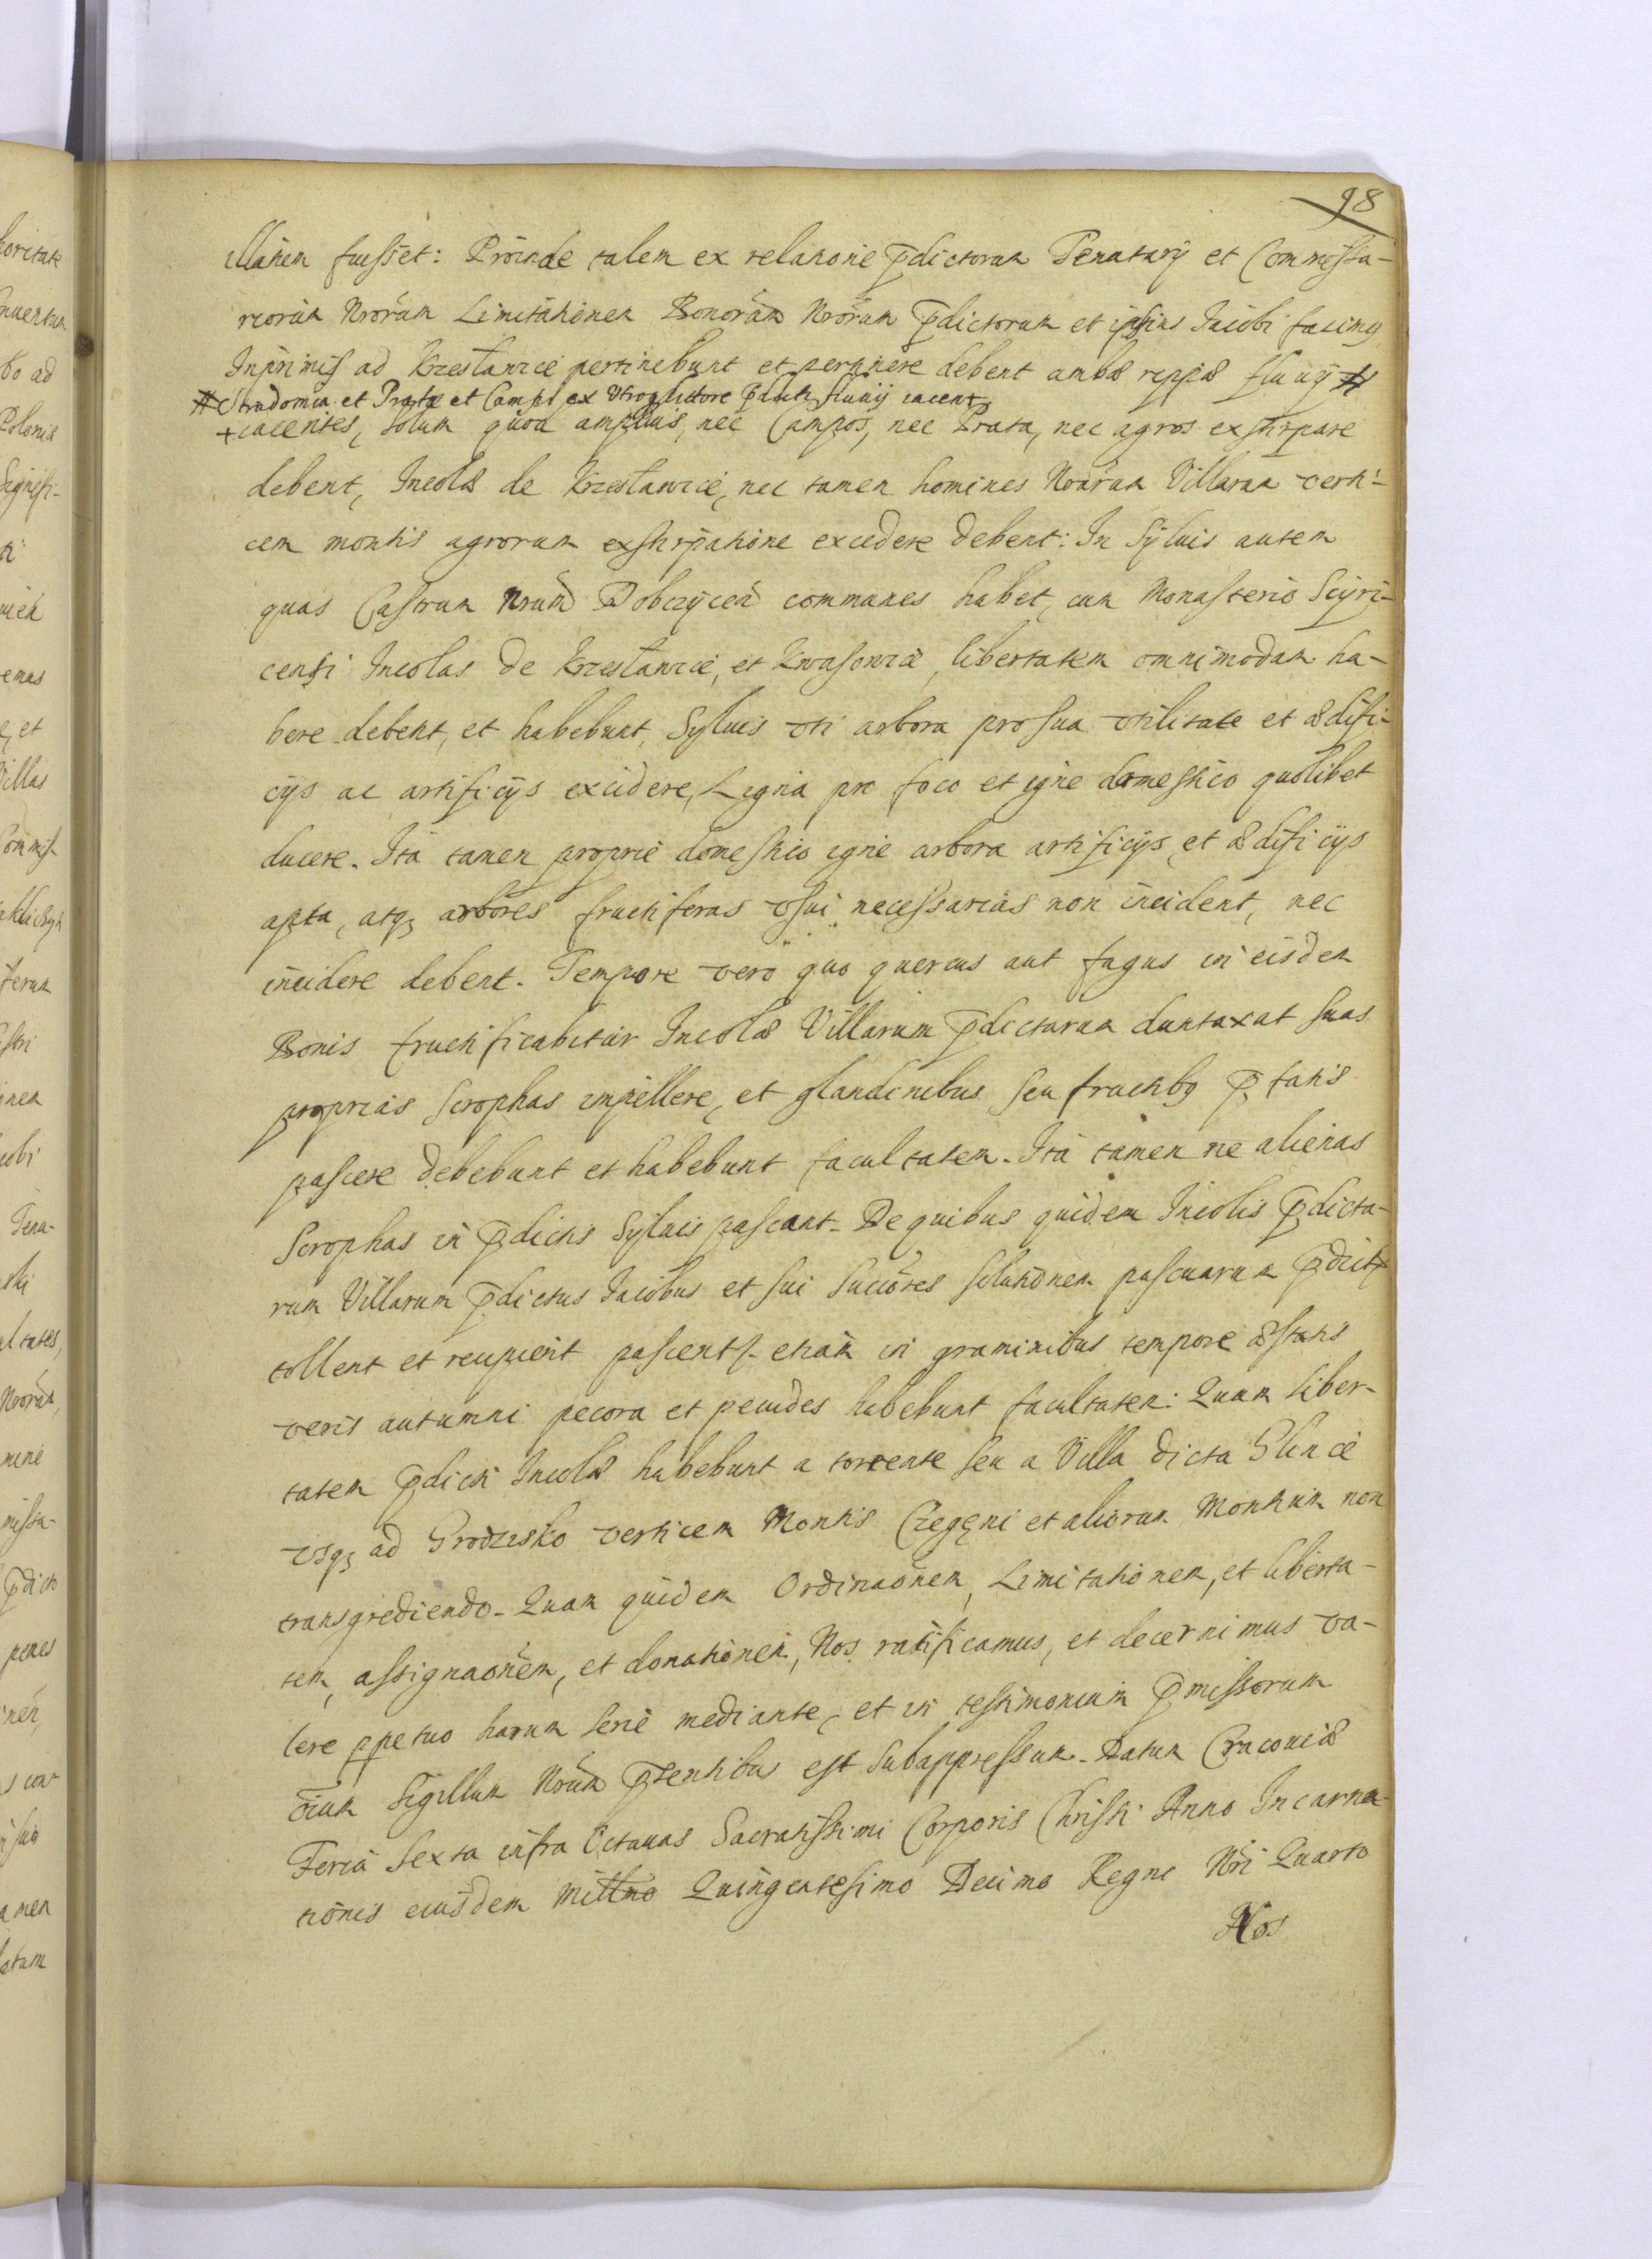 98
illatiem fuisset: Proinde talem ex relatione p̄dictorum Tenutarij et Commissa-
riorum Nrorum Limitationem Bonorum Nrorum p̄dictorum et ipsius Jacobi facimq
Inprimis ad Krzesławice pertinebunt et pertinere debent ambæ rippæ fluuij #
# Stradomia et Prata et Campi ex vtroq littore p̄dicti fluuij iacent
+ iacentes, solum quod amplius, nec Campos, nec Prata, nec agros exstirpare
debent, Incolæ de Krzesławice, nec tamen homines Nrarum Villarum verti-
cem montis agrorum exstirpatione excedere debent: In Syluis autem
quas Castrum Nrum Dobczycen communes habet, cum Monasterio Sciyri-
censi Incolas de Krzesławice, et Kwasowice, libertatem omnimodam ha-
bere debent, et habebunt, Syluis vti arbora pro sua vtilitate et ædifi-
cijs ac artificijs excidere, Ligna pro foco et igne domestico quolibet
ducere. Ita tamen proprie domestico igne arbora artificijs, et ædificijs
apta, atq arbores fructiferas vsui necessarias non incident, nec
incidere debent. Tempore vero quo quercus aut fagus in eisdem
Bonis fructificabitur Incolæ Villarum p̄dictarum duntaxat suas
proprias scrophas impellere, et glandinibus seu fructibq p̄fatis
pascere debebunt et habebunt facultatem. Ita tamen ne alienas
Scrophas in p̄dictis Syluis pascant. De quibus quidem Incolis p̄dicta-
rum Villarum p̄dictus Jacobus et sui succōres solutionem pascuarum p̄dict
tollent et recipient pascent etiam in graminibus tempore æstatis
veris autumni pecora et pecudes habebunt facultatem: Quam liber-
tatem p̄dicti Incolæ habebunt a torrente seu a Villa dicta Glince
vsq ad Grodzisko verticem Montis Czegęni et aliorum Montium non
transgrediendo. Quam quidem Ordinaōnem, Limitationem, et liberta-
tem, assignaōnem, et donationem, Nos ratificamus, et decernimus va-
lere ppetuo harum serie mediante, et in testimonium p̄missorum
oīum Sigillum Nrum p̄sentibus est subappressum. Datum Cracouiæ
Feria Sexta infra Octauas Sacratissimi Corporis Christi Anno Incarna-
tionis eiusdem Millmo Quingentesimo Decimo Regni Nri Quarto
Nos